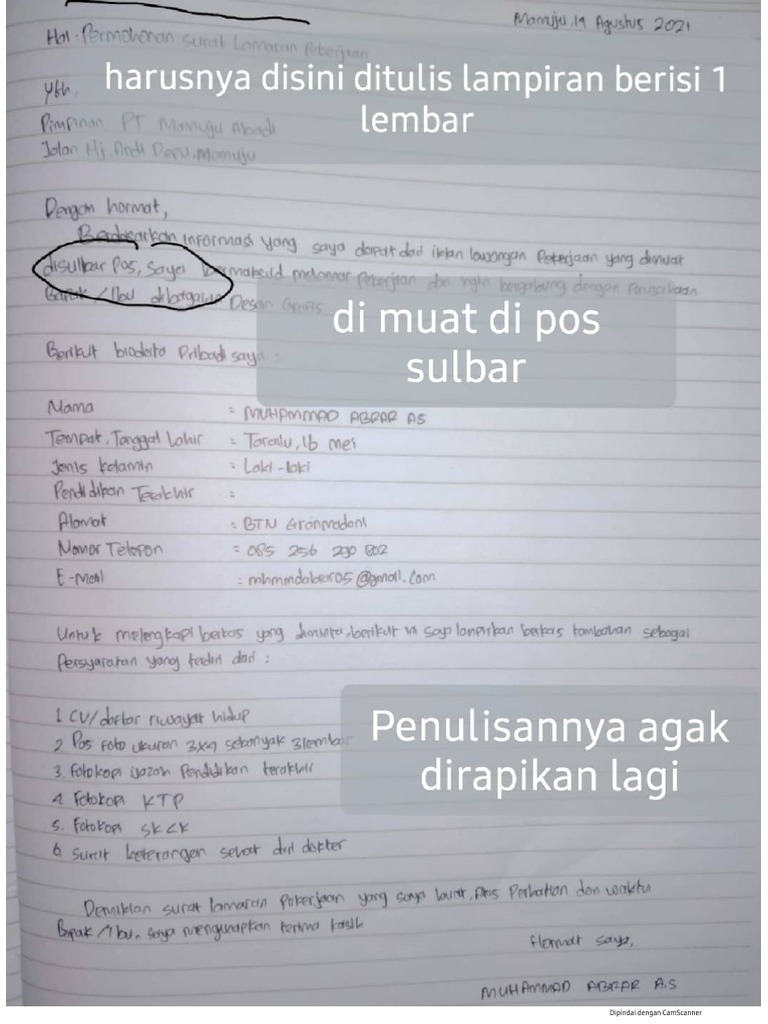 Mamuju, 19 Agustus 2021
Hal : Permohonan Surat Lamaran Pekerjaan
harusnya disini ditulis lampiran berisi 1
lembar
Yth,
Pimpinan PT Mamuju Abadi
Jalan Hj. Andi Depu, Mamuju
Dengan hormat,
Berdasarkan informasi yang saya dapat dari iklan lowongan Pekerjaan yang dimuat
disulbar Pos, Saya bermaksud melamar Pekerjaan dan ingin bergabung dengan Perusahaan
Bapak / Ibu dibagian Desain Grafis
di muat di pos
sulbar
Berikut biodata Pribadi saya :
Nama : MUHAMMAD ABRAR AS
Tempat, Tanggal Lahir : Taralu, 16 mei
Jenis Kelamin : Laki-laki
Pendidikan Terakhir :
Alamat : BTN Granmadani
Nomor Telepon : 085 256 290 802
E-Mail :
Untuk melengkapi berkas yang diminta, berikut ini saya lampirkan berkas tambahan sebagai
Persyaratan yang terdiri dari :
1. CV/daftar riwayat hidup
2. Pas Foto ukuran 3x4 sebanyak 3 lembar
3. Fotokopi ijazah Pendidikan terakhir
4. Fotokopi KTP
5. Fotokopi SKCK
6. Surat keterangan sehat dari dokter
Penulisannya agak
dirapikan lagi
Demikian surat lamaran Pekerjaan yang saya buat, Atas Perhatian dan waktu
Bapak / Ibu, saya mengucapkan terima kasih
Hormat saya,
MUHAMMAD ABRAR A.S
Dipindai dengan CamScanner